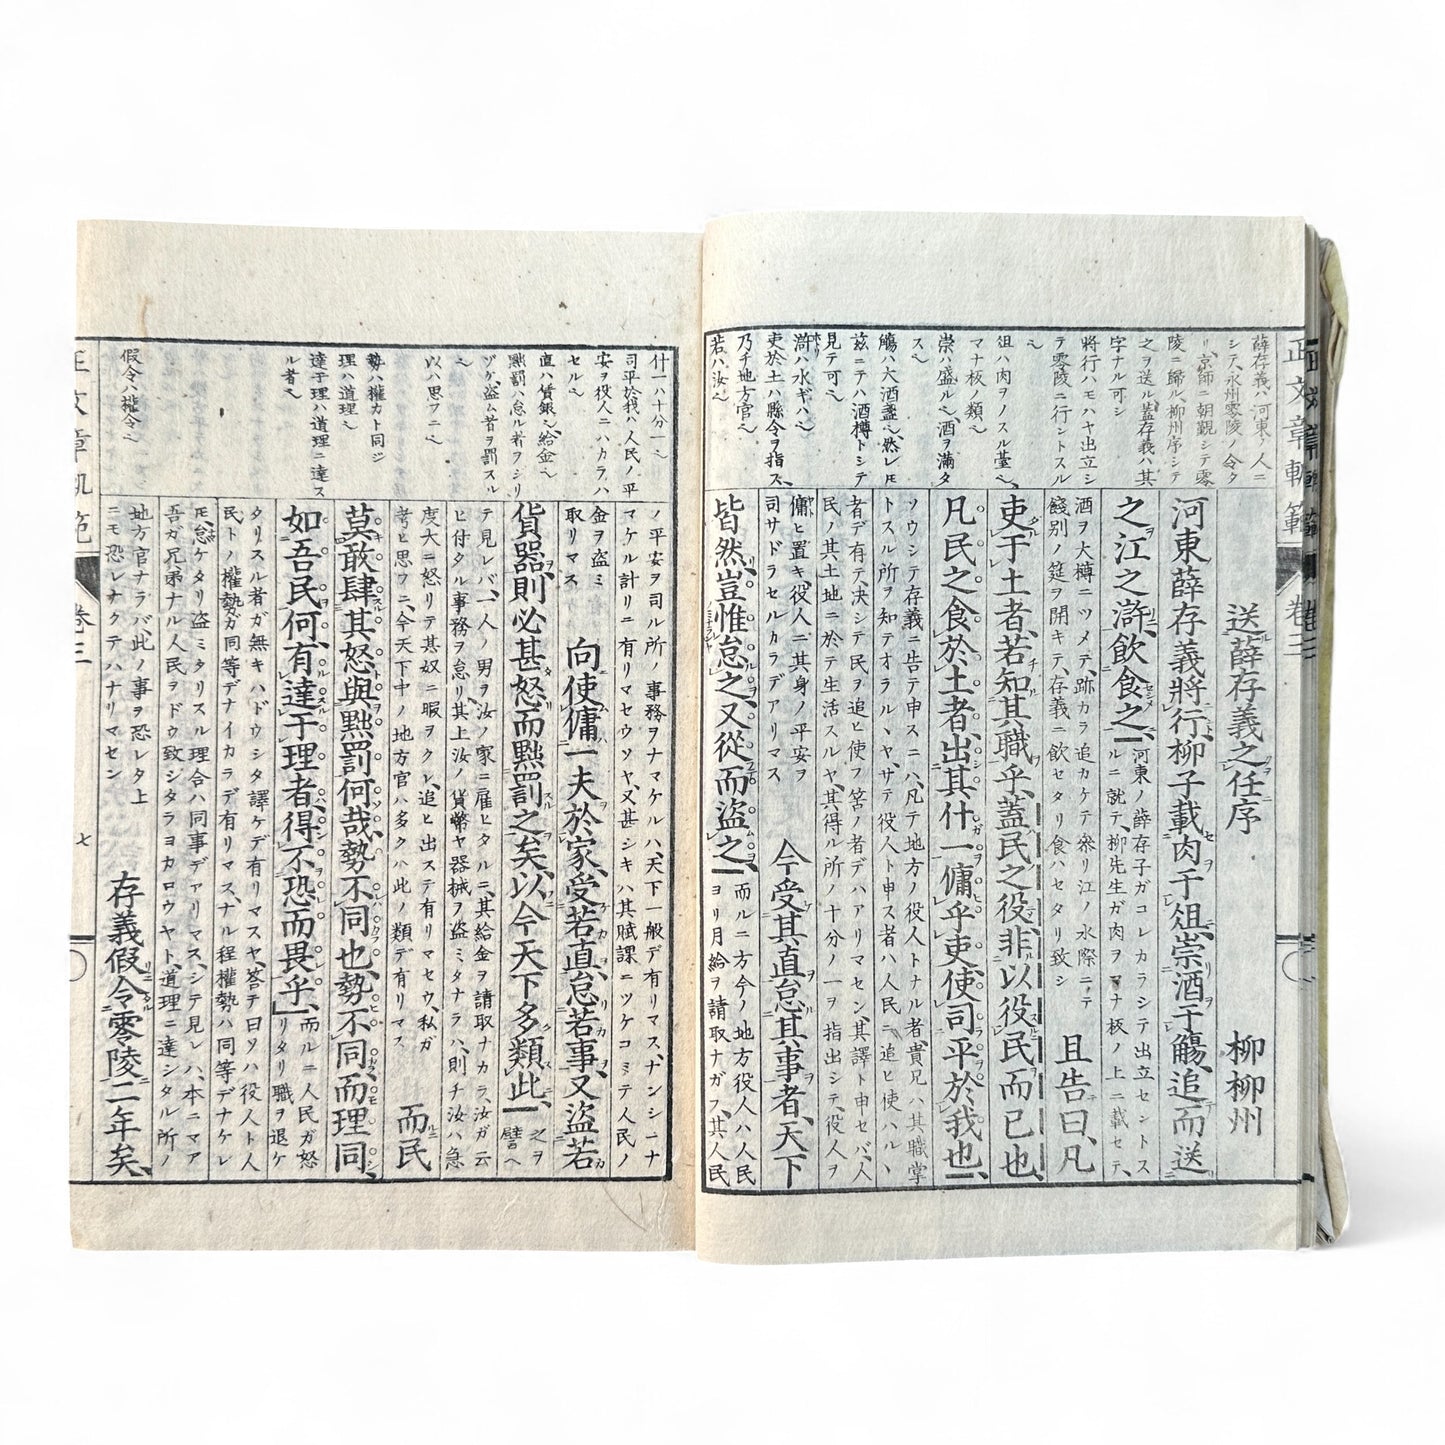 送薛存義之任序
柳柳州
河東薛存義將行柳子載肉于俎崇酒于觴追而送
之江之滸飲食之
河東ノ薛存子ガコレカラシテ出立セントス
ルニ就テ、柳先生ガ肉ヲマナ板ノ上ニ載セテ、
酒ヲ大樽ニツメテ、跡カラ追カケテ參リ江ノ水際ニテ
餞別ノ筵ヲ開キテ、存義ニ飲セタリ食ハセタリ致シ
且告曰凡
吏于土者若知其職乎蓋民之役非以役民而已也
ソウシテ存義ニ告テ申スニハ、凡テ地方ノ役人トナル者、貴兄ハ其職掌
トスル所ヲ知テオラルヽヤ、サテ役人ト申ス者ハ人民ニ追ヒ使ハルヽ
凡民之食於土者出其什一傭乎吏使司平於我也
者デ有テ、決シテ民ヲ追ヒ使フ筈ノ者デハアリマセン、其譯ト申セバ、人
民ノ其土地ニ於テ生活スルヤ、其得ル所ノ十分ノ一ヲ指出シテ、役人ヲ
傭ヒ置キ、役人ニ其身ノ平安ヲ
司サドラセルカラデアリマス
今受其直怠其事者天下
皆然豈惟怠之又從而盜之
而ルニ方今ノ地方役人ハ人民
ヨリ月給ヲ請取ナガラ、其人民
ノ平安ヲ司ル所ノ事務ヲナマケルハ、天下一般デ有リマス、ナンシーナ
マケル計リニ有リマセウソヤ、又甚シキハ其賦課ニツケコミテ人民ノ
金ヲ盗ミ
取リマス
向使傭一夫於家受若直怠若事又盜若
貨器則必甚怒而黜罰之矣以今天下多類此
之ヲ
譬ヘ
テ見レバ、一人ノ男ヲ汝ノ家ニ雇ヒタルニ、其給金ヲ請取ナカラ、汝ガ云
ヒ付タル事務ヲ怠リ、其上汝ノ貨幣ヤ器械ヲ盜ミタナラハ、則チ汝ハ急
度大ニ怒リテ其奴ニ暇ヲクレ、追ヒ出ステ有リマセウ、私ガ
考ヒ思フニ、今天下中ノ地方官ハ多クハ此ノ類デ有リマス
而民
莫敢肆其怒與黜罰何哉勢不同也勢不同而理同
如吾民何有達于理者得不恐而畏乎
而ルニ人民ガ怒
リタリ職ヲ退ケ
タリスル者ガ無キハドウシタ譯ケデ有リマスヤ、答テ曰ソハ役人ト人
民トノ權勢ガ同等デナイカラデ、有リマス、ナル程權勢ハ同等デナケレ
𪜈、怠ケタリ盜ミタリスル理合ハ同事デアリマス、シテ見レハ、本ニマア
吾ガ兄弟ナル人民ヲドウ致シタラヨカロウヤト、道理ニ達シタル所ノ
地方官ナラバ、此ノ事ヲ恐レタ上
ニモ恐レナクテハナリマセン
存義假令零陵二年矣
薛存義ハ河東ノ人ニ
シテ、永州零陵ノ令タ
リ、京師ニ朝覲シテ零
陵ニ歸ル、柳州序シテ
之ヲ送ル、蓋存義ハ其
字ナル可シ
將行ハモハヤ出立シ
テ零陵ニ行ントスル
ヘ
俎ハ肉ヲノスル臺ヘ、
マナ板ノ類ヘ
崇ハ盛ルヘ、酒ヲ滿タ
スヘ
觴ハ大酒盞ヘ、然レ𪜈
玆ニテハ酒樽トシテ
見テ可ヘ
滸ハ水ギハヘ
吏於土ハ縣令ヲ指ス、
乃チ地方官ヘ
若ハ汝ヘ
什一ハ十分一ヘ
司平於我ハ人民ノ平
安ヲ役人ニハカラハ
セルヘ
直ハ賃銀ヘ、給金ヘ
黜罰ハ怠ル者ヲシリ
ゾケ盗ム者ヲ罰スル
ヘ
以ハ思フニヘ
勢ハ權力ト同ジ
理ハ道理ヘ
達于理ハ道理ニ達ス
ル者ヘ
假令ハ權令ヘ
正文章軌範
卷三
七